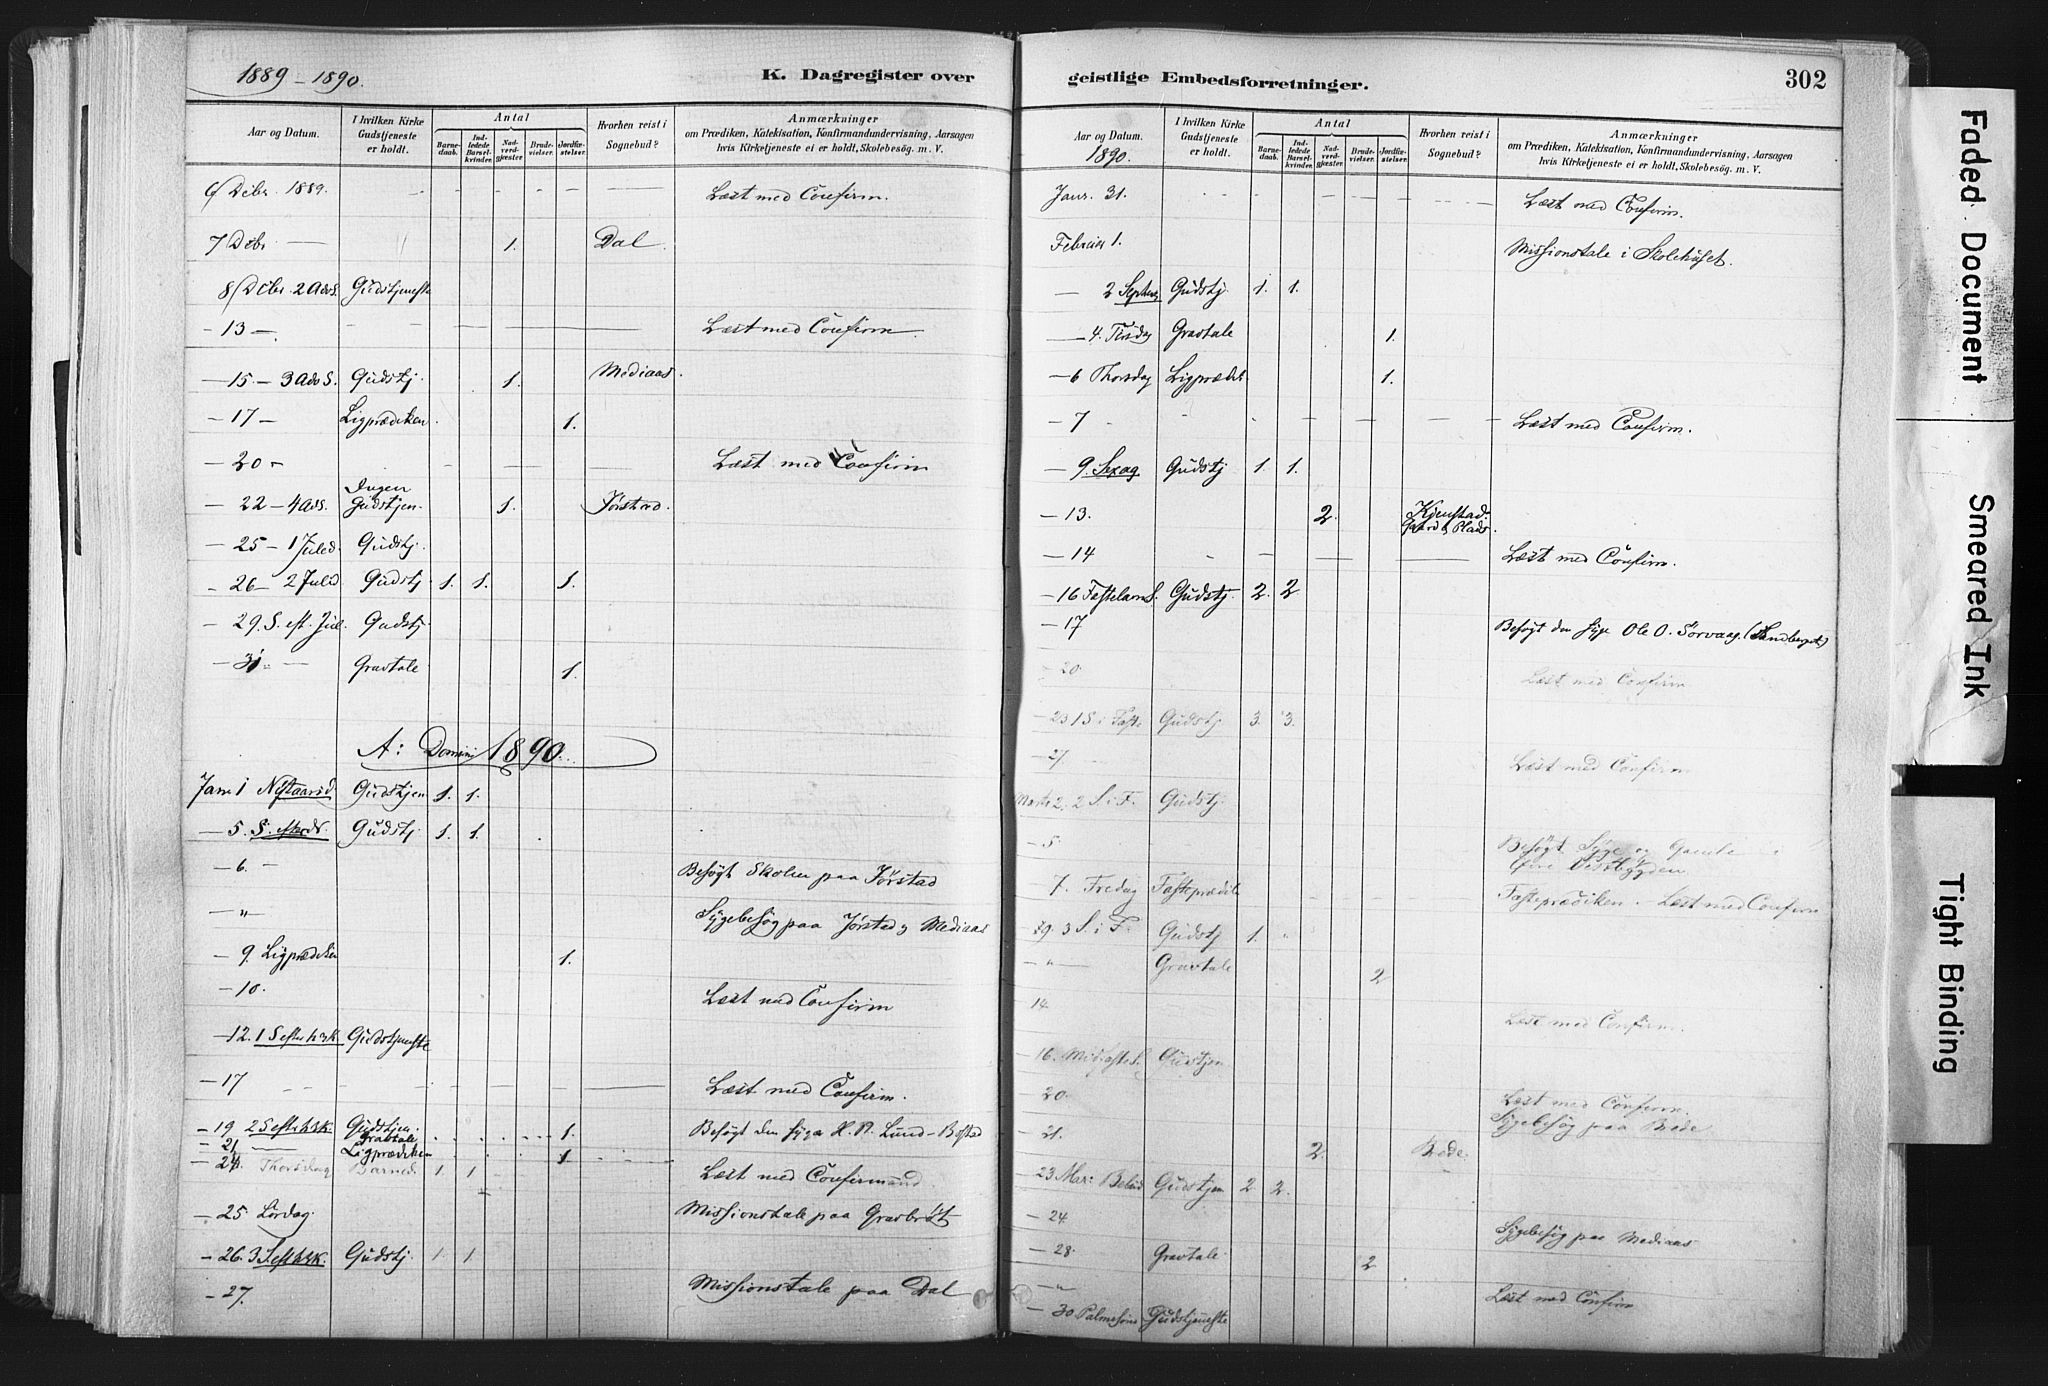 1889-1890.
K. Dagregister over
Aar og Datum.
I hvilken Kirke Gudstjeneste er holdt.
Antal
Barnedaab.
Indledede Barselkvinder.
Nadverdgjæster
Brudevielser.
Jordfæstelser.
Hvorhen reist i Sognebud?
Anmærkninger
om Prædiken, Katekisation, Konfirmandundervisning, Aarsagen
hvis Kirketjeneste ei er holdt, Skolebesög. m. V.
6 Dcbr. 1889. Læst med Confirm.
7 Dcbr — 1. Dal
8 Dcbr. 2 AdvS. Gudstjeneste
- 13 - Læst med Confirm.
- 15 - 3 AdvS. Gudstj. 1. Mediaas.
- 17 - Ligprædiken. 1.
- 20 - Læst med Confirm
Ingen
- 22 - 4 AdS. Gudstjen. 1. Jørstad.
- 25 - 1 Juled. Gudstj.
- 26 - 2 Juled Gudstj 1. 1. 1.
- 29. S. eft. Jul. Gudstj.
- 31 - Gravtale 1.
A: Domini 1890.
Janr 1 Nytaarsd. Gudstjen 1. 1.
- 5. S. efter Nr. Gudstj 1. 1.
- 6. - Besøgt Skolen paa Jørstad
- " - Sygebesøg paa Jørstad og Mediaas
- 9. Ligprædiken 1.
- 10. Læst med Confirm
- 12. 1 S efter h3k Gudstjeneste
- 17 Læst med Confirm.
- 19 2 S efter h3k. Gudstjen. Besøgt den syge H. N. Lund-Bøstad
- 21 Gravtale 1.
Ligprædiken 1
- 24. Thorsdag Barned. 1 1 Læst med Confirmand.
- 25. Lørdag. Missionstale paa Grasbrøt
- 26. 3 S. eft h3k. Gudstj 1 1
- 27. Missionstale paa Dal
geistlige Embedsforretninger.
302
Aar og Datum.
1890.
I hvilken Kirke Gudstjeneste er holdt.
Antal
Barnedaab.
Indledede Barselkvinder.
Nadverdgjæster
Brudevielser.
Jordfæstelser.
Hvorhen reist i Sognebud?
Anmærkninger
om Prædiken, Katekisation, Konfirmandundervisning, Aarsagen
hvis Kirketjeneste ei er holdt, Skolebesög. m. V.
Janr. 31. Læst med Confirm.
Februar 1. Missionstale i Skolehuset.
- 2 Septuag Gudstj. 1. 1.
- 4. Tirsdag Gravtale 1.
- 6 Thorsdag Ligprædik. 1.
- 7 Læst med Confirm.
- 9. Sexag Gudstj 1. 1.
- 13. 2. Kjenstad-
Gaard & Plads.
- 14 Læst med Confirm.
- 16 Fastelavns S. Gudstj. 2. 2
- 17 Besøgt den syge Ole O. Sørvaag. (Sandberget)
- 20. Læst med Confirm
- 23 1 S i Faste Gudstj 3. 3.
- 27 Læst med Confirm
Marts 2. 2 S. i F. Gudstj.
- 5 Besøgt Syge og Gamle i
Øvre Vestbygden
- 7. Fredag Fasteprædik Fasteprædiken. Læst med Confirm
- 9. 3 S. i F. Gudstj 1. "
- " - Gravtale 2
14 Læst med Confirm.
- 16. Midfaste S. Gudstjen
- 20. Læst med Confirm.
Sygebesøg paa Brede
- 21. 2. Brede
23 Mar: Bebud Gudstjen 2 2.
- 24 Sygebesøg paa Mediaas
- 28. Gravtale 2
- " Læst med Confirm
- 30 Palmesøn Gudstjeneste
Faded Document
Smeared Ink
Tight Binding